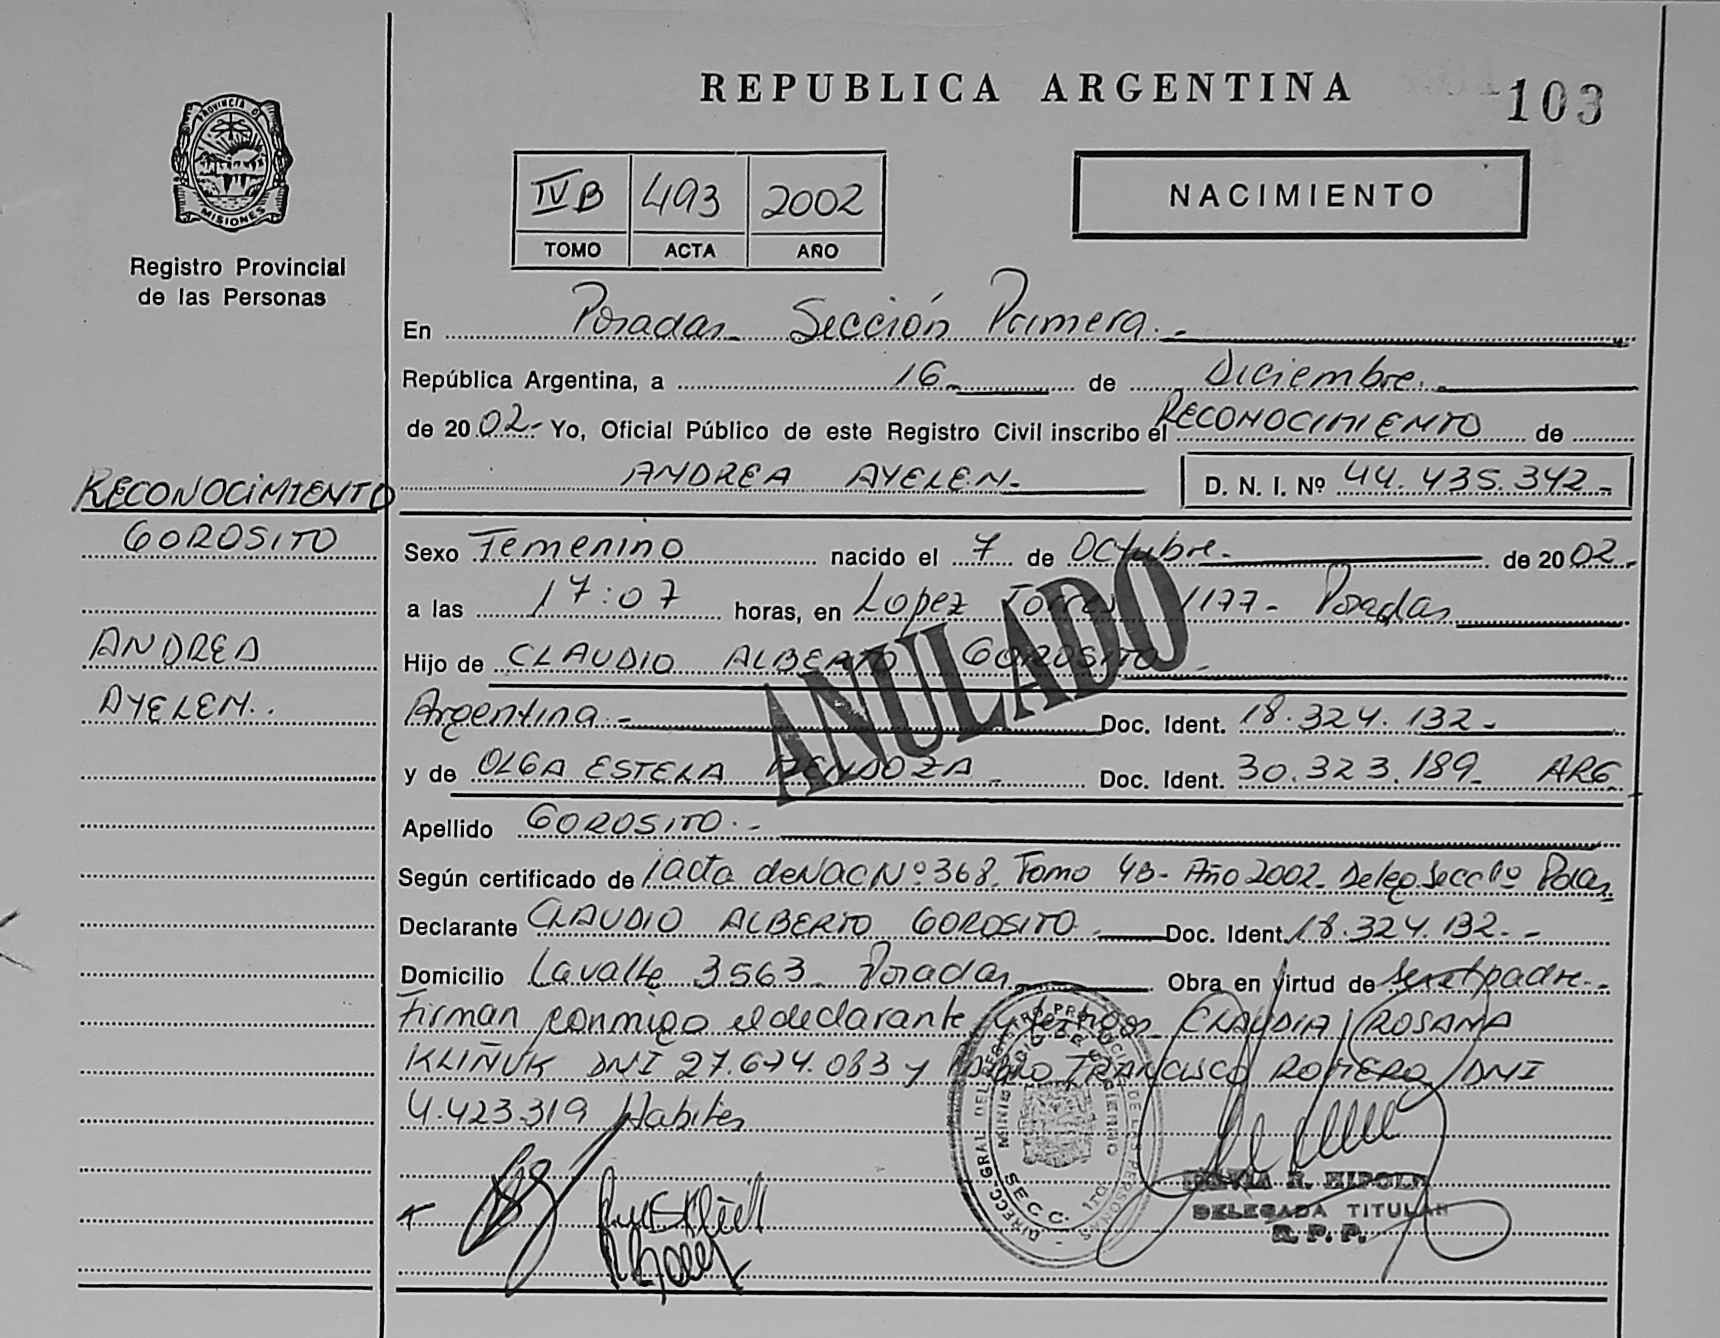 REPUBLICA ARGENTINA
-103
PROVINCIA DE
MISIONES
Registro Provincial
de las Personas
IV B 493 2002
TOMO ACTA AÑO
NACIMIENTO
En Posadas Sección Primera.-
República Argentina, a 16 de Diciembre.
de 2002- Yo, Oficial Público de este Registro Civil inscribo el RECONOCIMIENTO de
ANDREA AYELEN.- D. N. I. Nº 44.435.342-
RECONOCIMIENTO
GOROSITO
ANDREA
AYELEN..
Sexo Femenino nacido el 7 de Octubre.- de 2002.-
a las 17:07 horas, en Lopez Torres 1177- Posadas
Hijo de CLAUDIO ALBERTO GOROSITO -
Argentina.- Doc. Ident. 18.324.132-
y de OLGA ESTELA MENDOZA - Doc. Ident. 30.323.189- ARG
ANULADO
Apellido GOROSITO.-
Según certificado de acta de NAC Nº 368. Tomo 4B- Año 2002- Deleg. Secc 1º Posas
Declarante CLAUDIO ALBERTO GOROSITO- Doc. Ident. 18.324.132.-
Domicilio Lavalle 3563- Posadas Obra en virtud de ser el padre.-
Firman conmigo el declarante y testigos CLAUDIA ROSANA
KLIÑUK DNI 27.674.083 y FRANCISCO ROMERO DNI
4.423.319 Habiles
DIRECC. GRAL. DEL REGISTRO PROVINCIAL DE LAS PERSONAS
MINISTERIO DE GOBIERNO
SECC. 1ro.
R. HIPOLI
DELEGADA TITULAR
R. P. P.